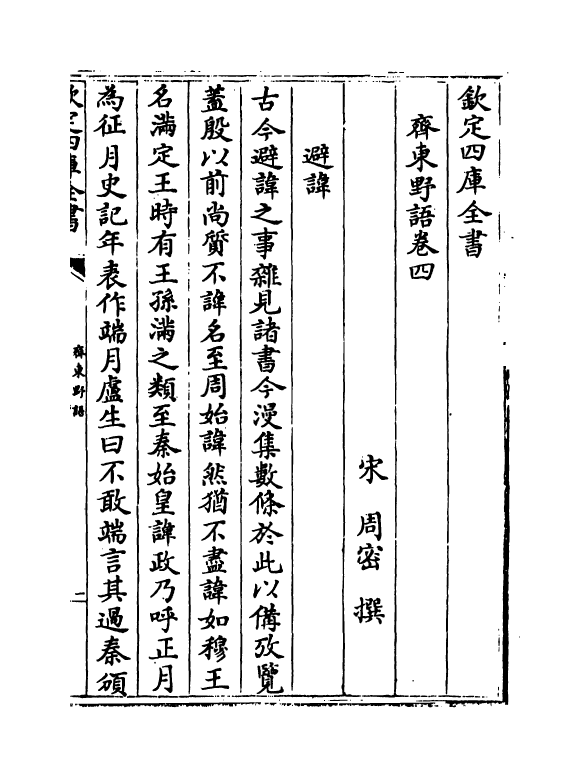 欽定四庫全書
齊東野語卷四
宋 周密 撰
避諱
古今避諱之事雜見諸書今漫集數條於此以偹攷覽
蓋殷以前尚質不諱名至周始諱然猶不盡諱如穆王
名滿定王時有王孫滿之類至秦始皇諱政乃呼正月
為征月史記年表作端月盧生曰不敢端言其過秦頒
欽定四庫全書
齊東野語
二